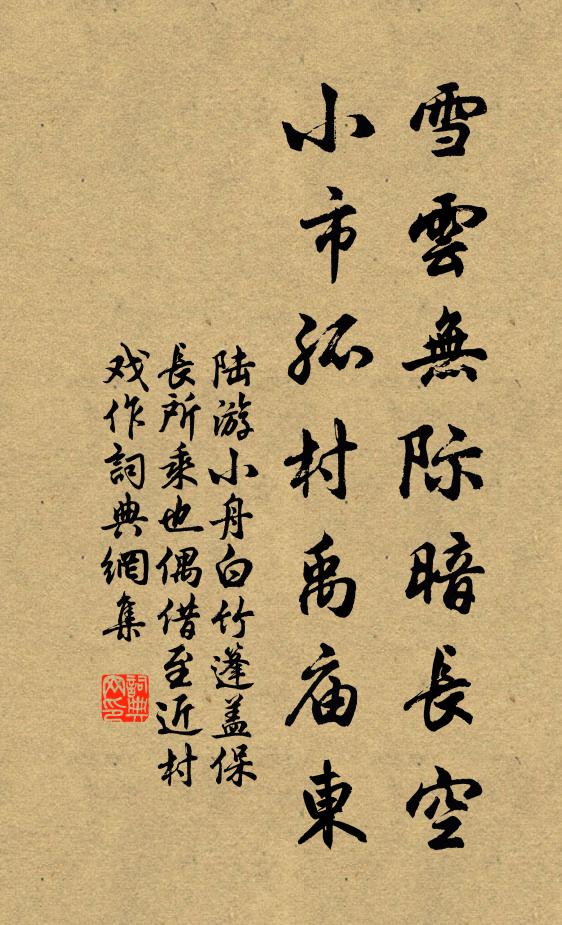 雪雲無际暗長空
小市孤村禹庙東
陆游小舟白竹蓬盖保
長所乘也偶借至近村
戏作詞典網集
詞典
网印